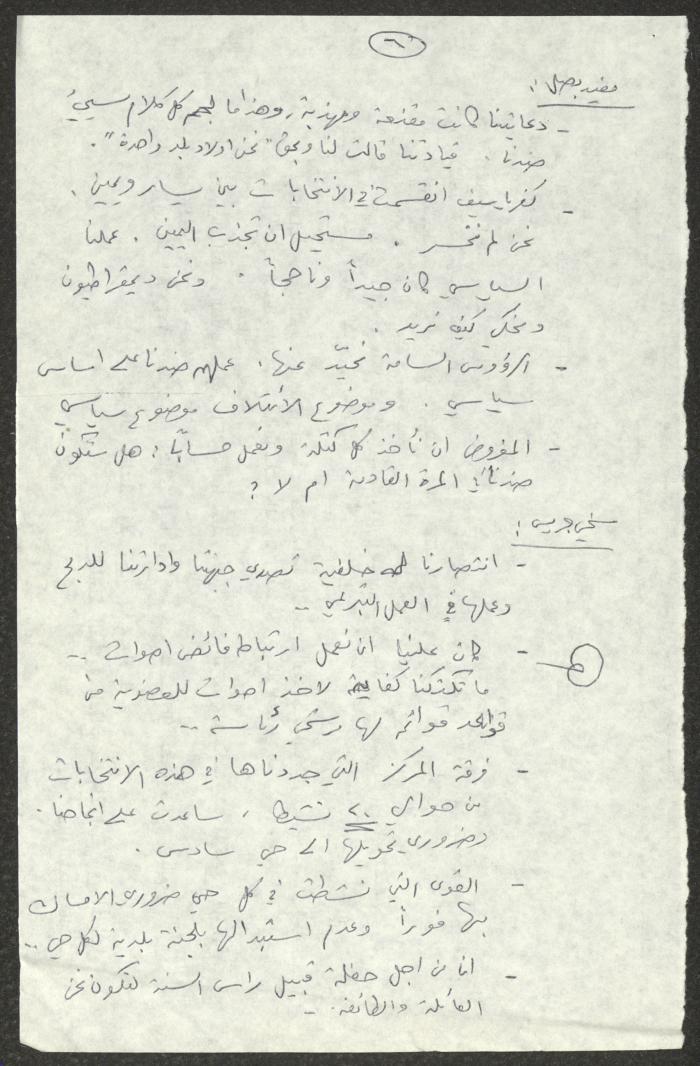 ٦
مفيد بصل :
- دعايتنا كانت مقنعة ومهذبة ، وهذا ما لجم كل كلام سيئ
ضدنا . قيادتنا قالت لنا وبحق " نحن اولاد بلد واحدة " .
- كفرياسيف انقسمت في الانتخابات بين يسار ويمين .
نحن لم نخسر . مستحيل ان تجذب اليمين . عملنا
السياسي كان جيداً وناجحاً . ونحن ديمقراطيون
ونحكي كيف نريد .
- الرؤوس السامة نحيّد عنها . عملهم ضدنا على اساس
سياسي . وموضوع الائتلاف موضوع سياسي
- المفروض ان نأخذ كل كتلة ونعمل حساباً : هل ستكون
ضدنا في المرة القادمة ام لا ?
سخي جريس :
- انتصارنا خلفية تصدي جبهتنا وادارتنا للدمج
وعملها في العمل البرلمي ..
- كان علينا ان نعمل ارتباط فائض اصوات ..
ما تكتكنا كفاية لاخذ اصوات للعضوية من
قواعد قوائم لها مرشحي رئاسة ..
- فرقة المركز التي جددناها في هذه الانتخابات
من حوالي ٢٠ نشيطا ، ساعدت على انجاحنا .
وضروري تحويلها الى حي سادس .
- القوى التي نشطت في كل حي ضروري الامساك
بها فوراً وعدم استبدالها بلجنة بلدية لكل حي ..
- انا من اجل حفلة قبيل راس السنة لتكون نحن
العائلة والطائفة . -